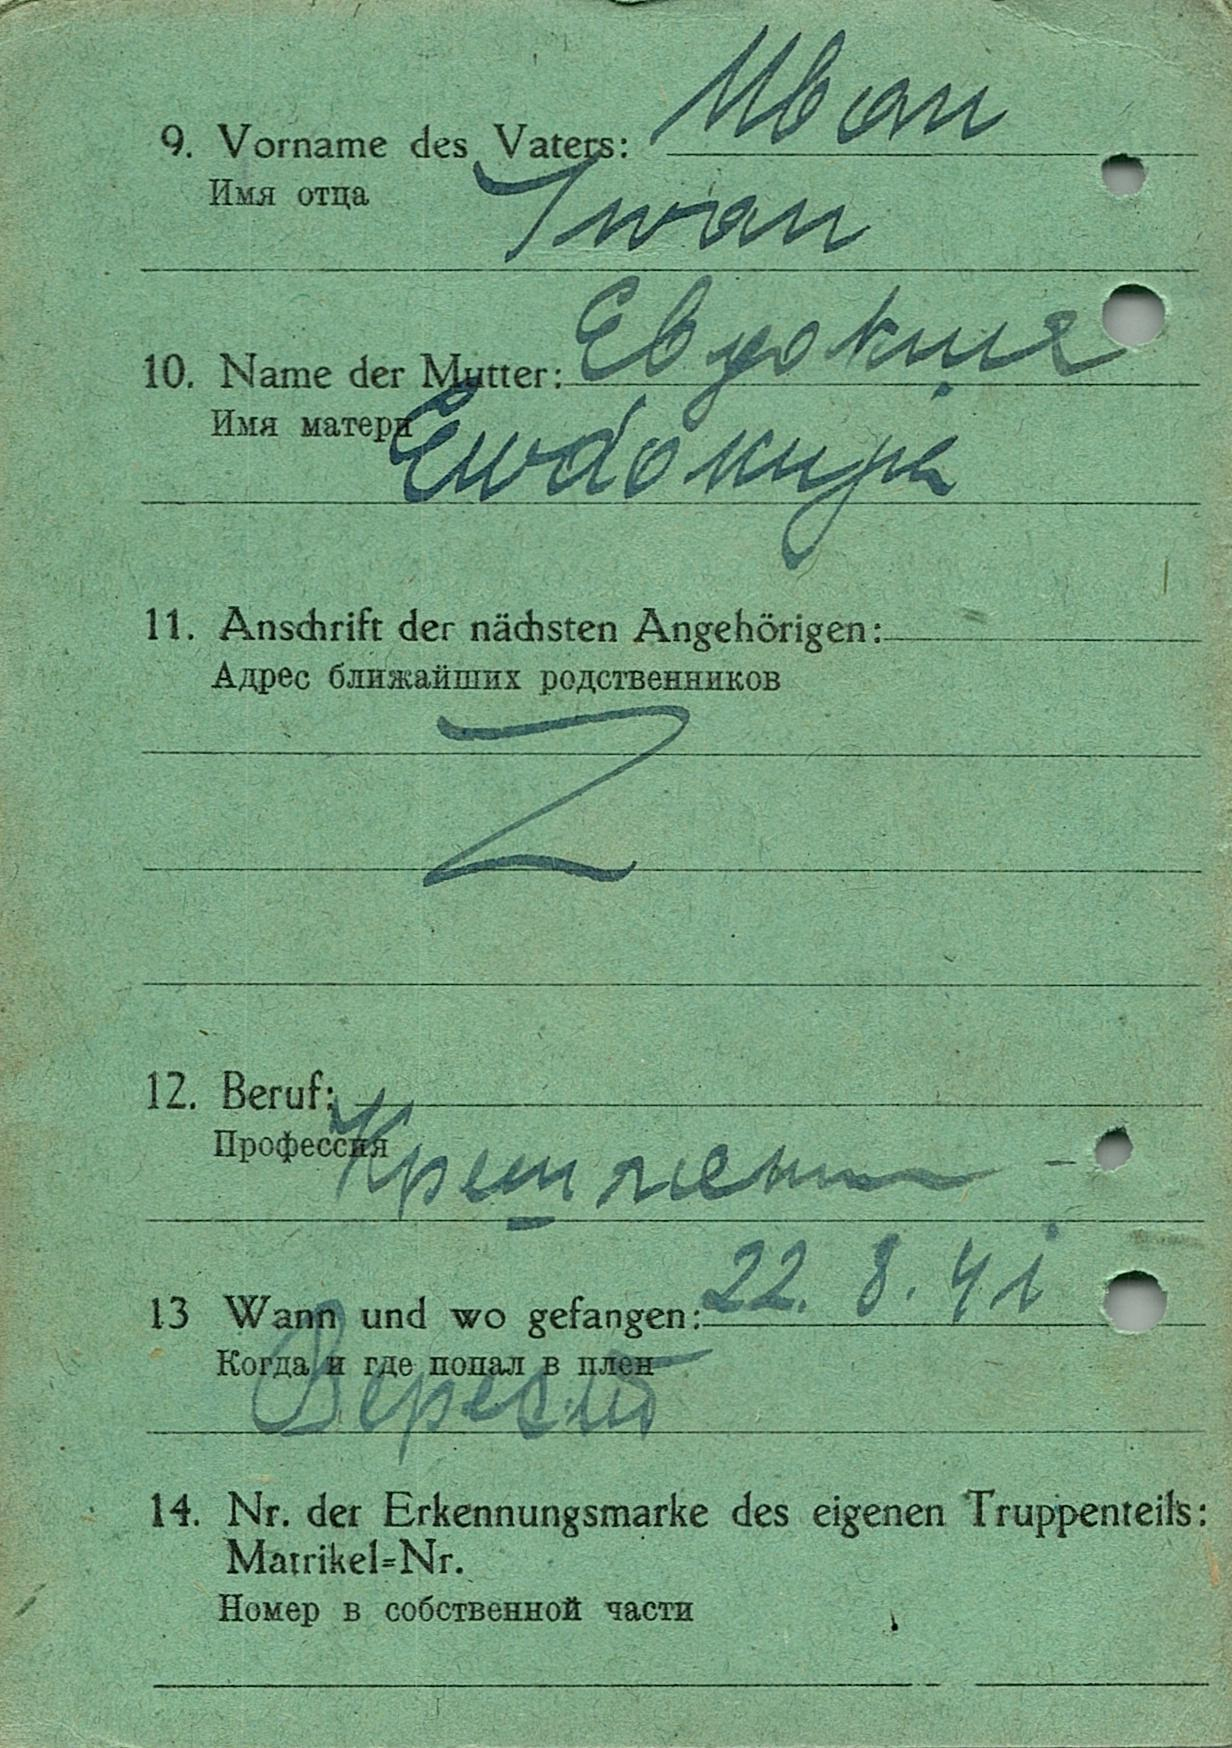 9. Vorname des Vaters: Иван
Имя отца
Iwan
10. Name der Mutter: Евдокия
Имя матери
Ewdokija
11. Anschrift der nächsten Angehörigen:
Адрес ближайших родственников
12. Beruf:
Профессия
13 Wann und wo gefangen: 22. 8. 41
Когда и где попал в плен
14. Nr. der Erkennungsmarke des eigenen Truppenteils:
Matrikel=Nr.
Номер в собственной части